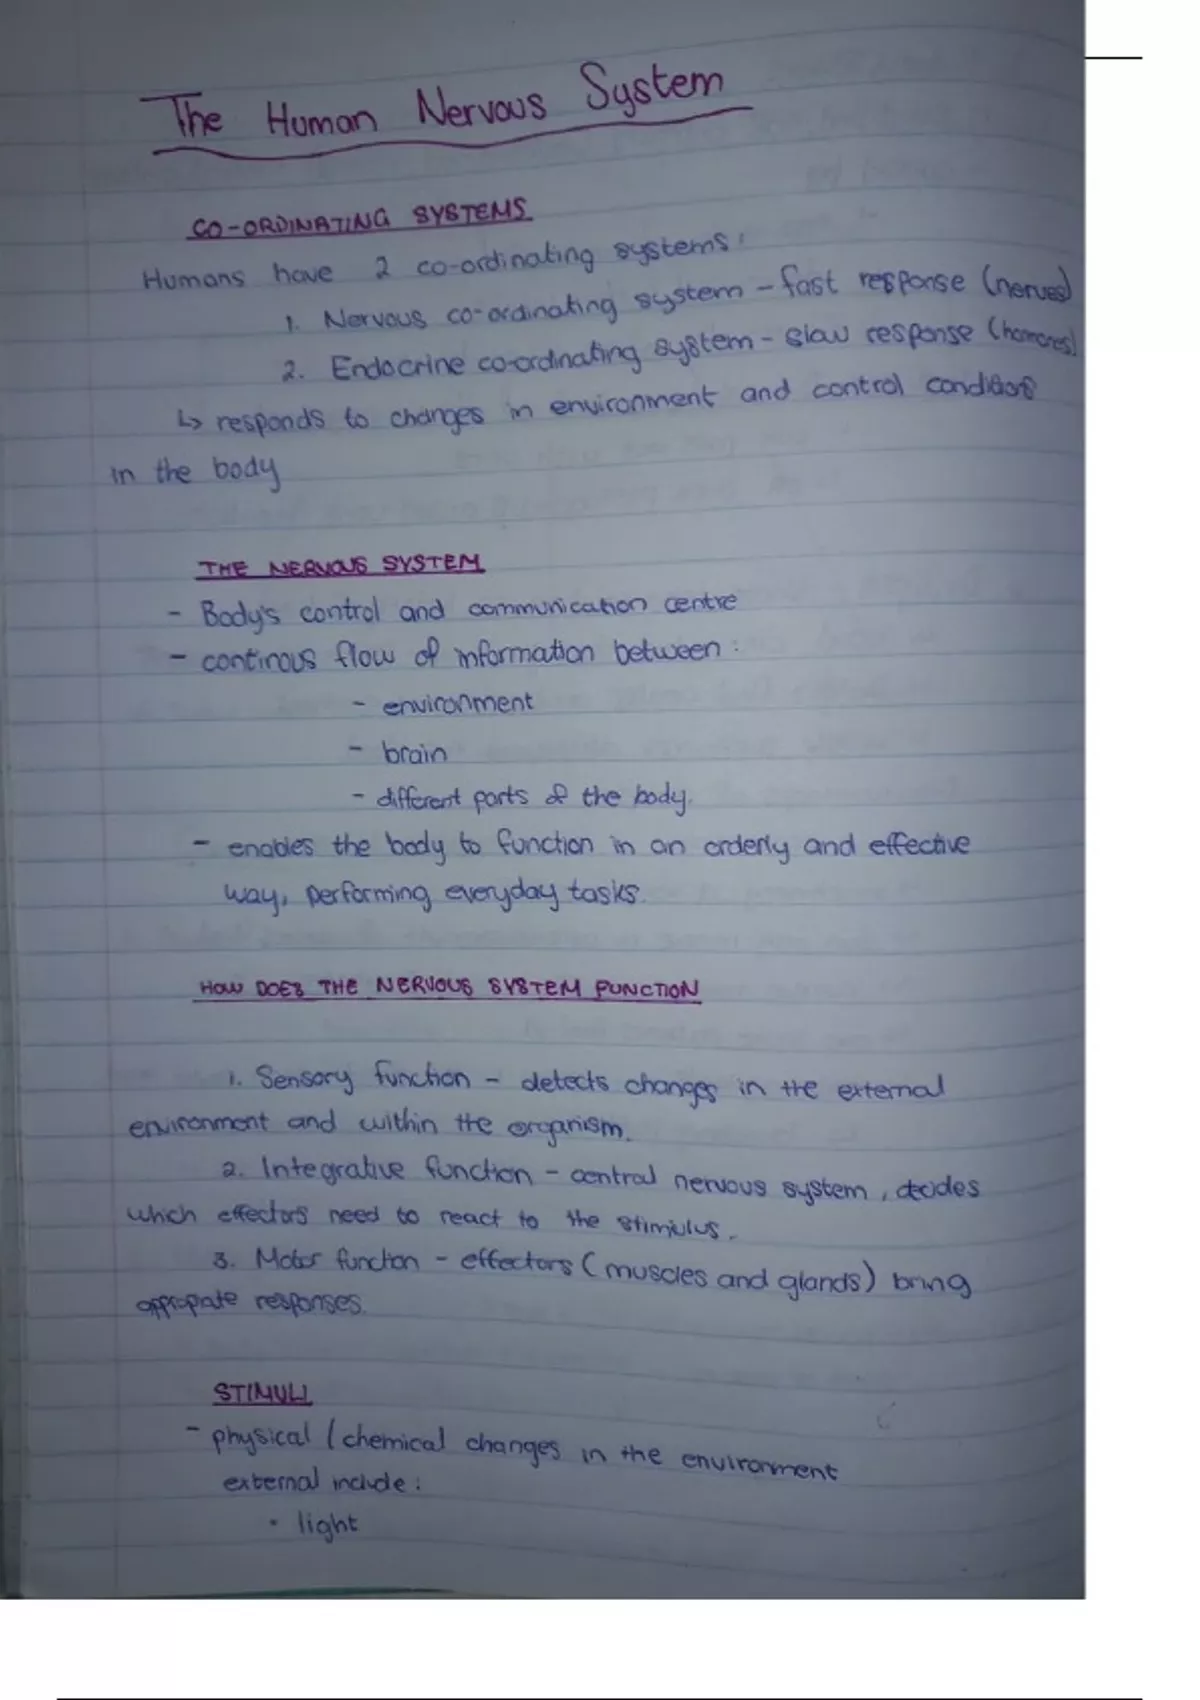 The Human Nervous System
CO-ORDINATING SYSTEMS
Humans have 2 co-ordinating systems:
1. Nervous co-ordinating system - fast response (nerves)
2. Endocrine co-ordinating system - slow response (homones)
↳ responds to changes in environment and control conditions
in the body
THE NERVOUS SYSTEM
- Body's control and communication centre
- continous flow of information between:
- environment
- brain
- different parts of the body.
- enables the body to function in an orderly and effective
way, performing everyday tasks.
HOW DOES THE NERVOUS SYSTEM FUNCTION
1. Sensory function - detects changes in the external
environment and within the organism.
2. Integrative function - central nervous system, decides
which effectors need to react to the stimulus.
3. Motor function - effectors (muscles and glands) bring
appropiate responses.
STIMULI
- physical / chemical changes in the environment
external include:
• light